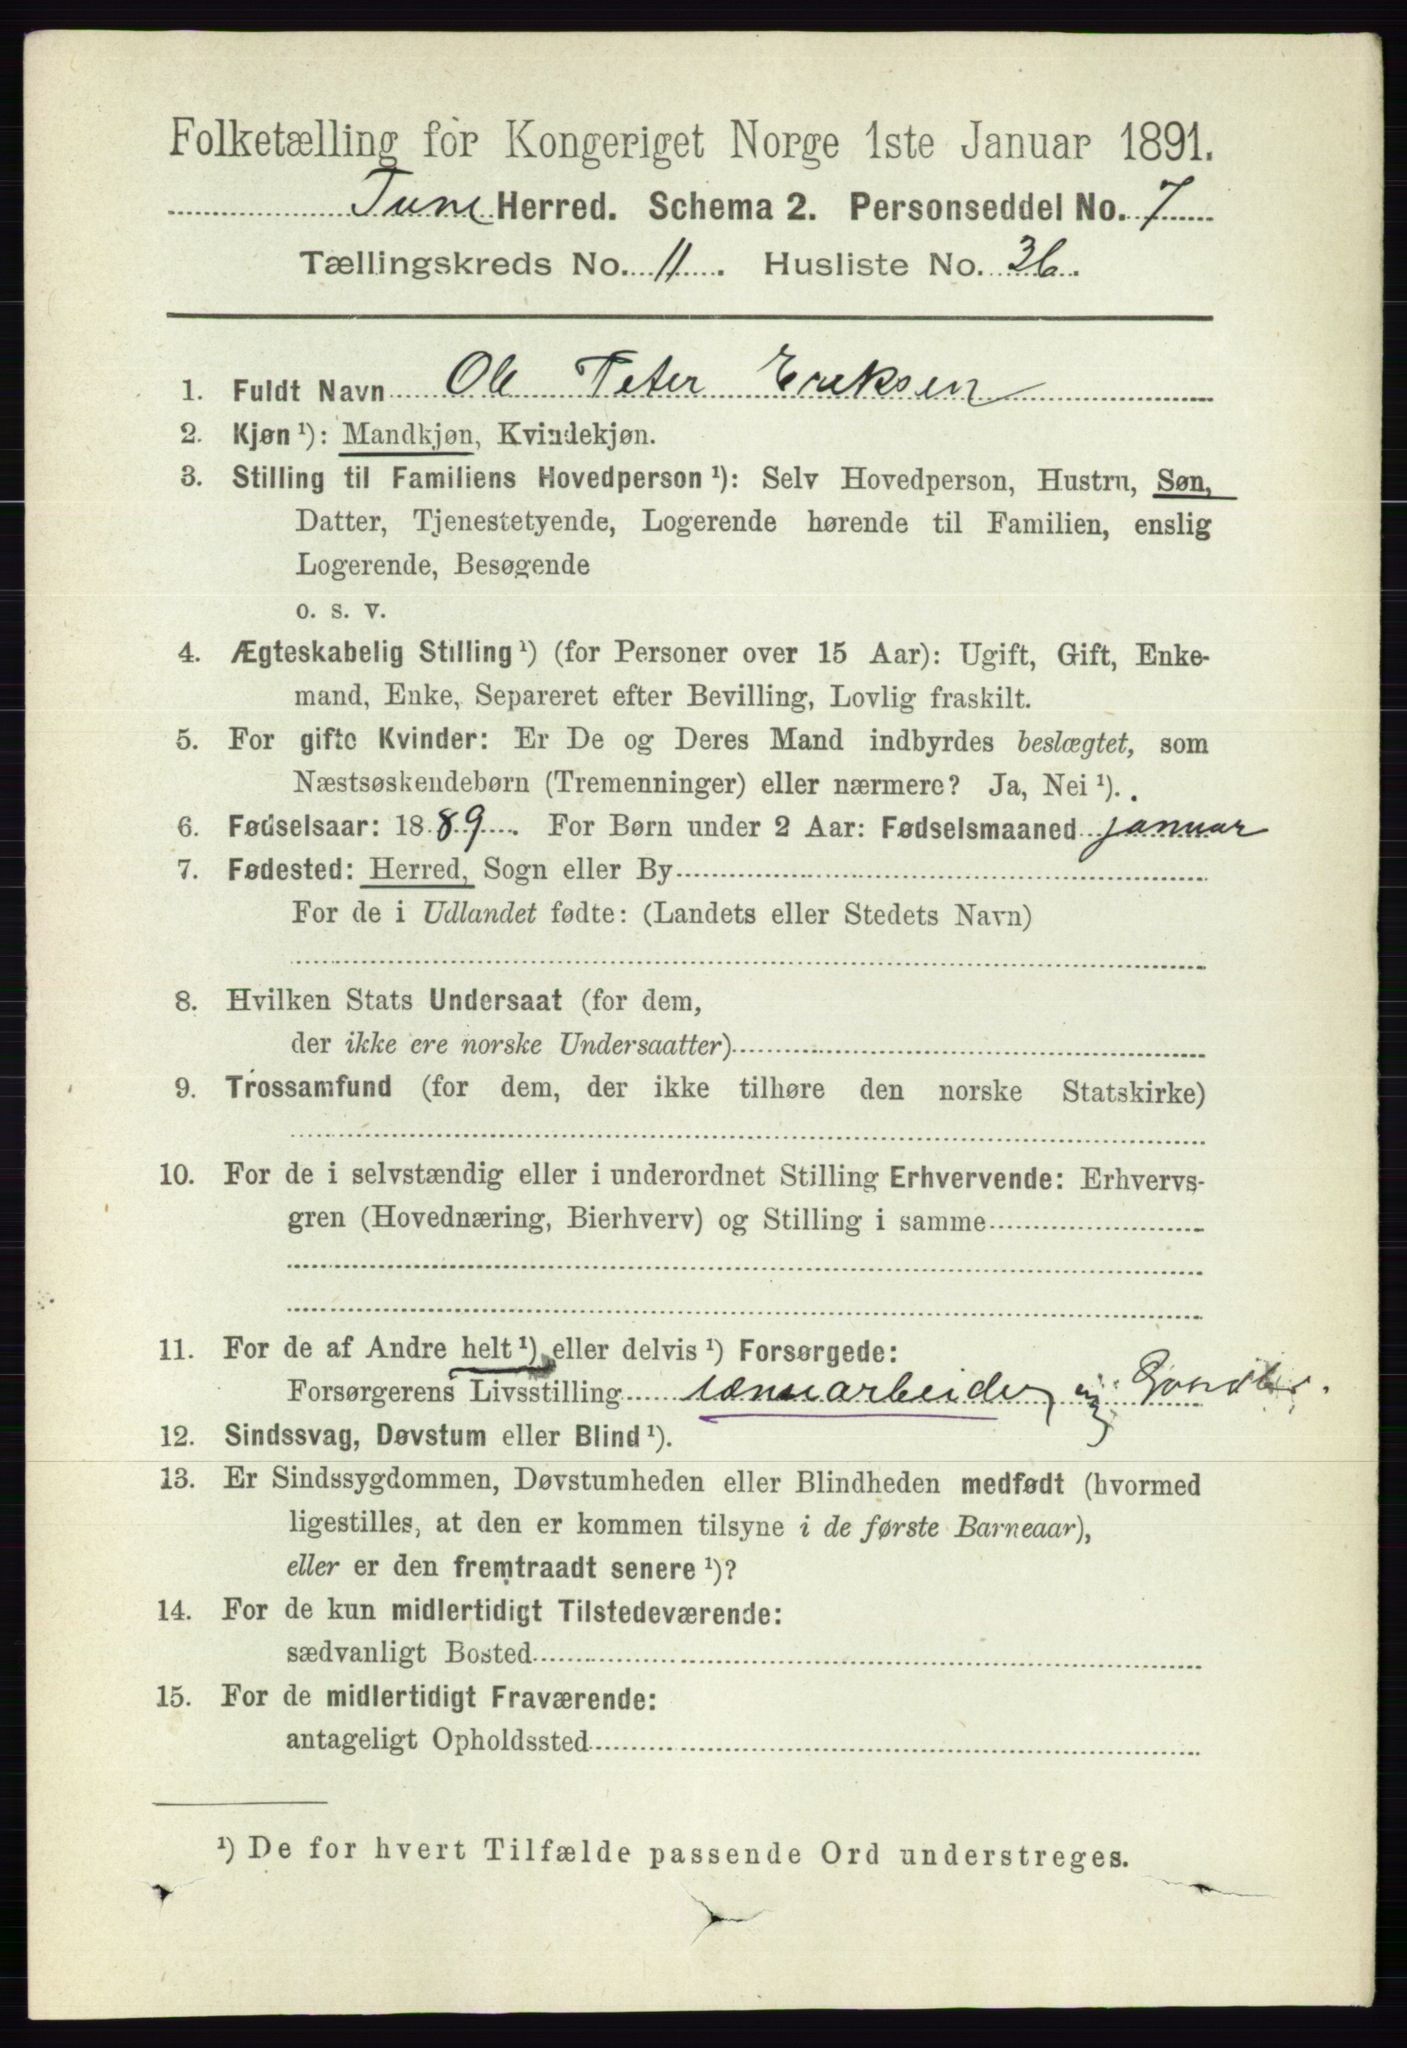 Folketælling for Kongeriget Norge 1ste Januar 1891.
Tune Herred. Schema 2. Personseddel No. 7
Tællingskreds No. 11. Husliste No. 36.
1. Fuldt Navn Ole Peter Eriksen
2. Kjøn ¹): Mandkjøn, Kvindekjøn.
3. Stilling til Familiens Hovedperson ¹): Selv Hovedperson, Hustru, Søn,
Datter, Tjenestetyende, Logerende hørende til Familien, enslig
Logerende, Besøgende
o. s. v.
4. Ægteskabelig Stilling ¹) (for Personer over 15 Aar): Ugift, Gift, Enke-
mand, Enke, Separeret efter Bevilling, Lovlig fraskilt.
5. For gifte Kvinder: Er De og Deres Mand indbyrdes beslægtet, som
Næstsøskendebørn (Tremenninger) eller nærmere? Ja, Nei ¹).
6. Fødselsaar: 1889. For Børn under 2 Aar: Fødselsmaaned januar
7. Fødested: Herred, Sogn eller By
For de i Udlandet fødte: (Landets eller Stedets Navn)
8. Hvilken Stats Undersaat (for dem,
der ikke ere norske Undersaatter)
9. Trossamfund (for dem, der ikke tilhøre den norske Statskirke)
10. For de i selvstændig eller i underordnet Stilling Erhvervende: Erhvervs-
gren (Hovednæring, Bierhverv) og Stilling i samme
11. For de af Andre helt ¹) eller delvis ¹) Forsørgede:
Forsørgerens Livsstilling
12. Sindssvag, Døvstum eller Blind ¹).
13. Er Sindssygdommen, Døvstumheden eller Blindheden medfødt (hvormed
ligestilles, at den er kommen tilsyne i de første Barneaar),
eller er den fremtraadt senere ¹)?
14. For de kun midlertidigt Tilstedeværende:
sædvanligt Bosted
15. For de midlertidigt Fraværende:
antageligt Opholdssted
¹) De for hvert Tilfælde passende Ord understreges.